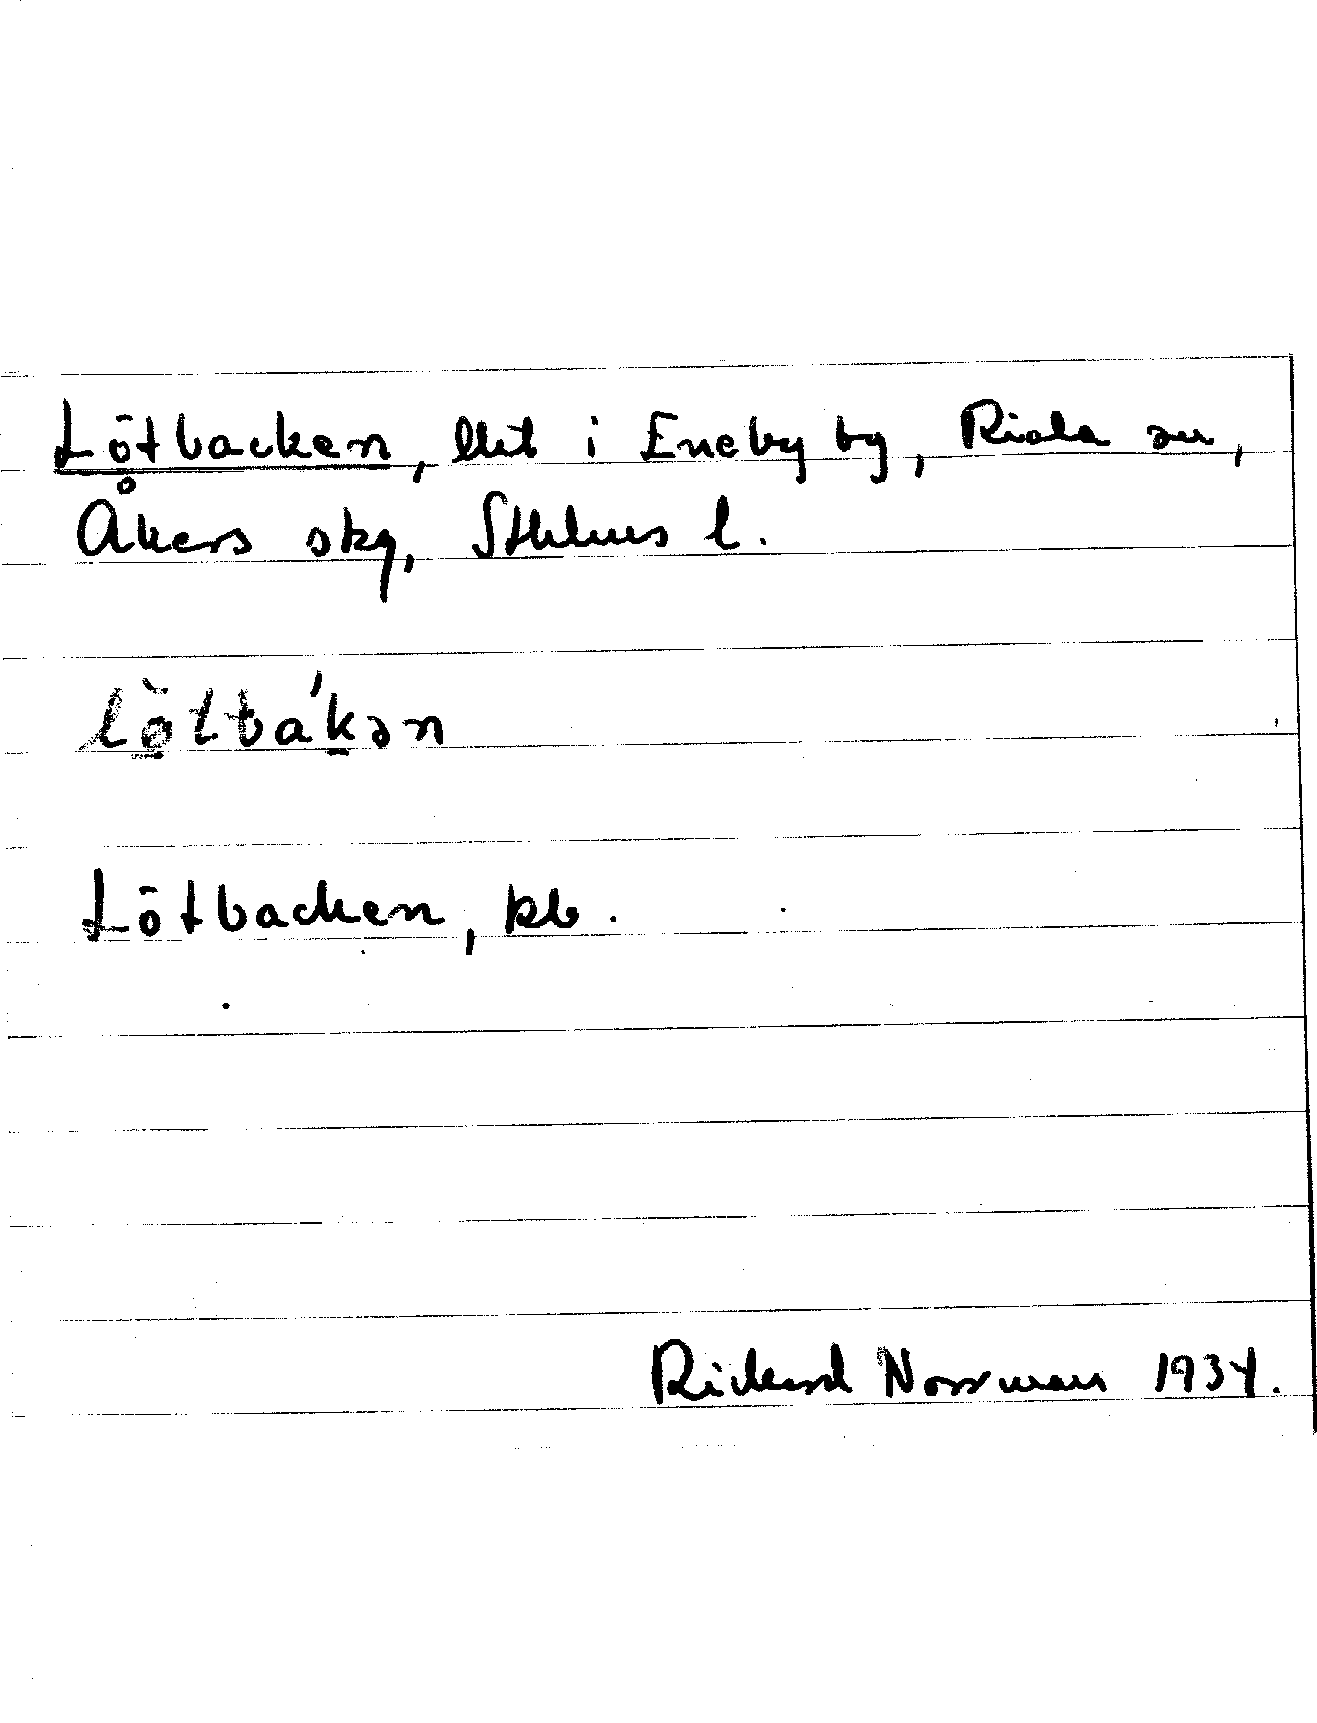 Lötbacken, lht i Eneby by, Riala sn,
Åkers skg, Sthlms l.
lö̀tbák̠ən
Lötbacken, kb.
Rickard Norrman 1934.